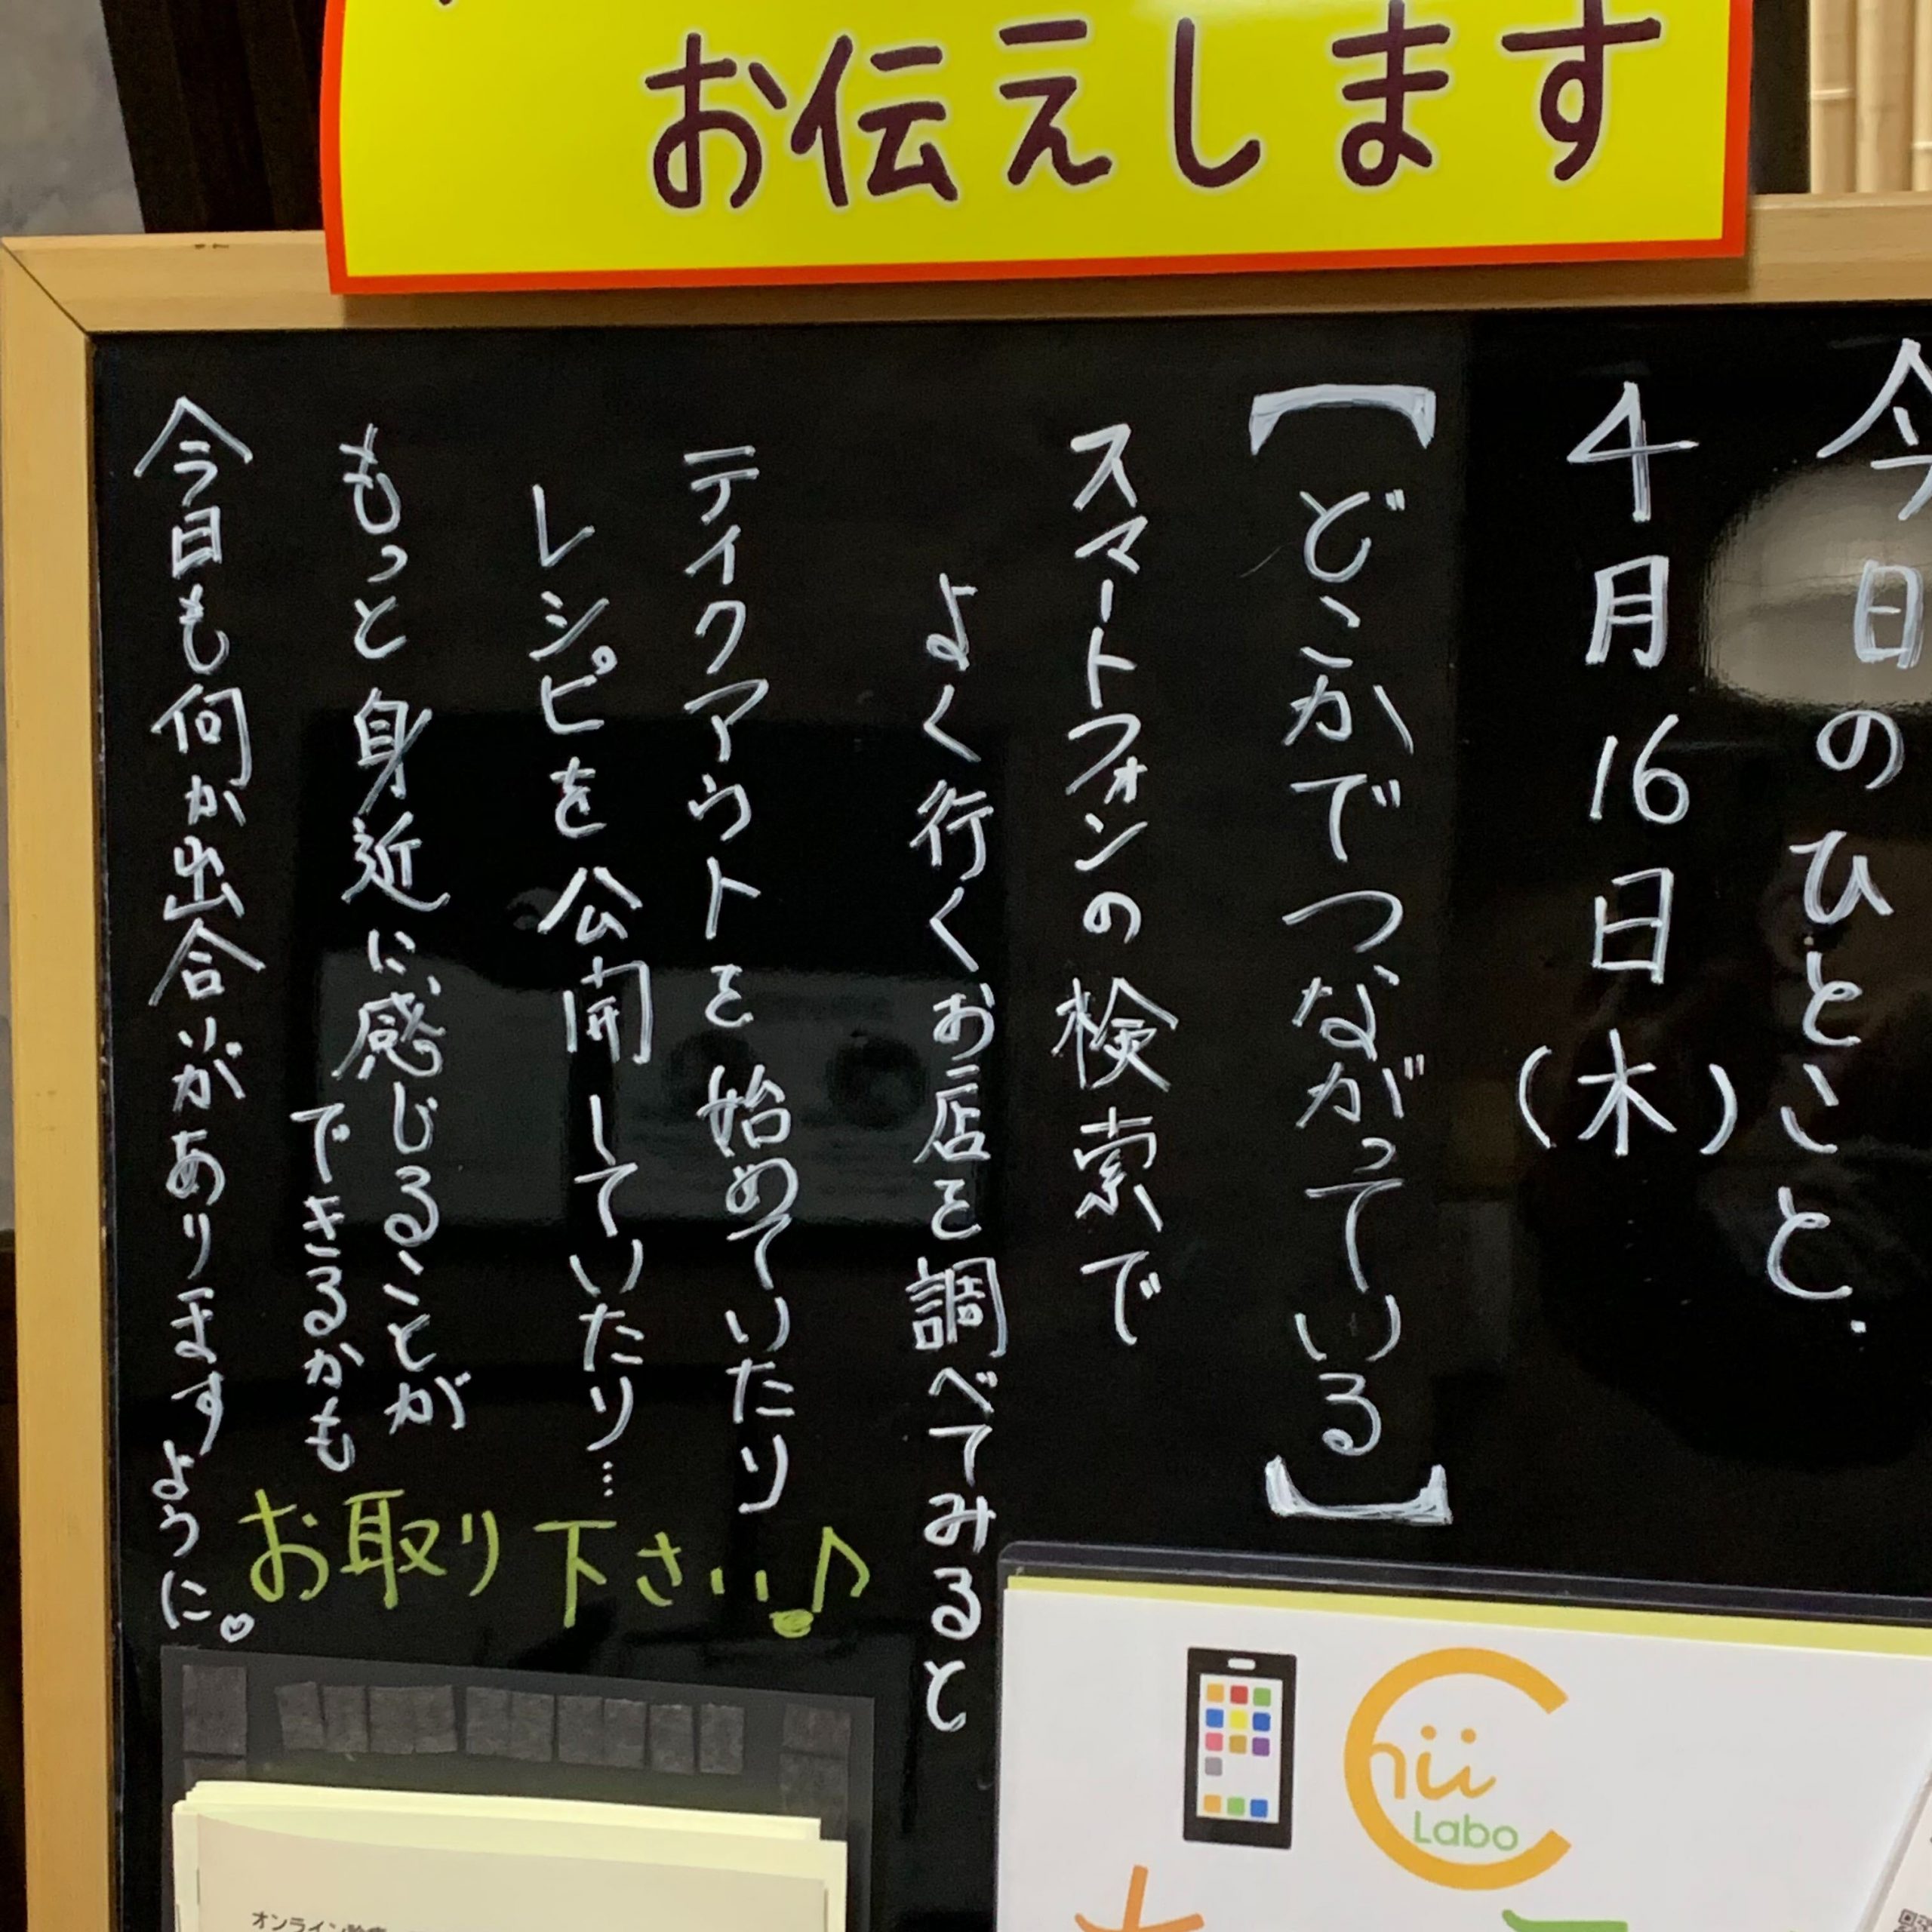 お伝えします
今日のひとこと.
4月16日(木)
【どこかでつながっている】
スマートフォンの検索で
よく行くお店を調べてみると
テイクアウトを始めていたり
レシピを公開していたり…
もっと身近に感じることが
できるかも
今日も何か出合いがありますように。
お取り下さい♪
Chii
Labo
オンライン診療